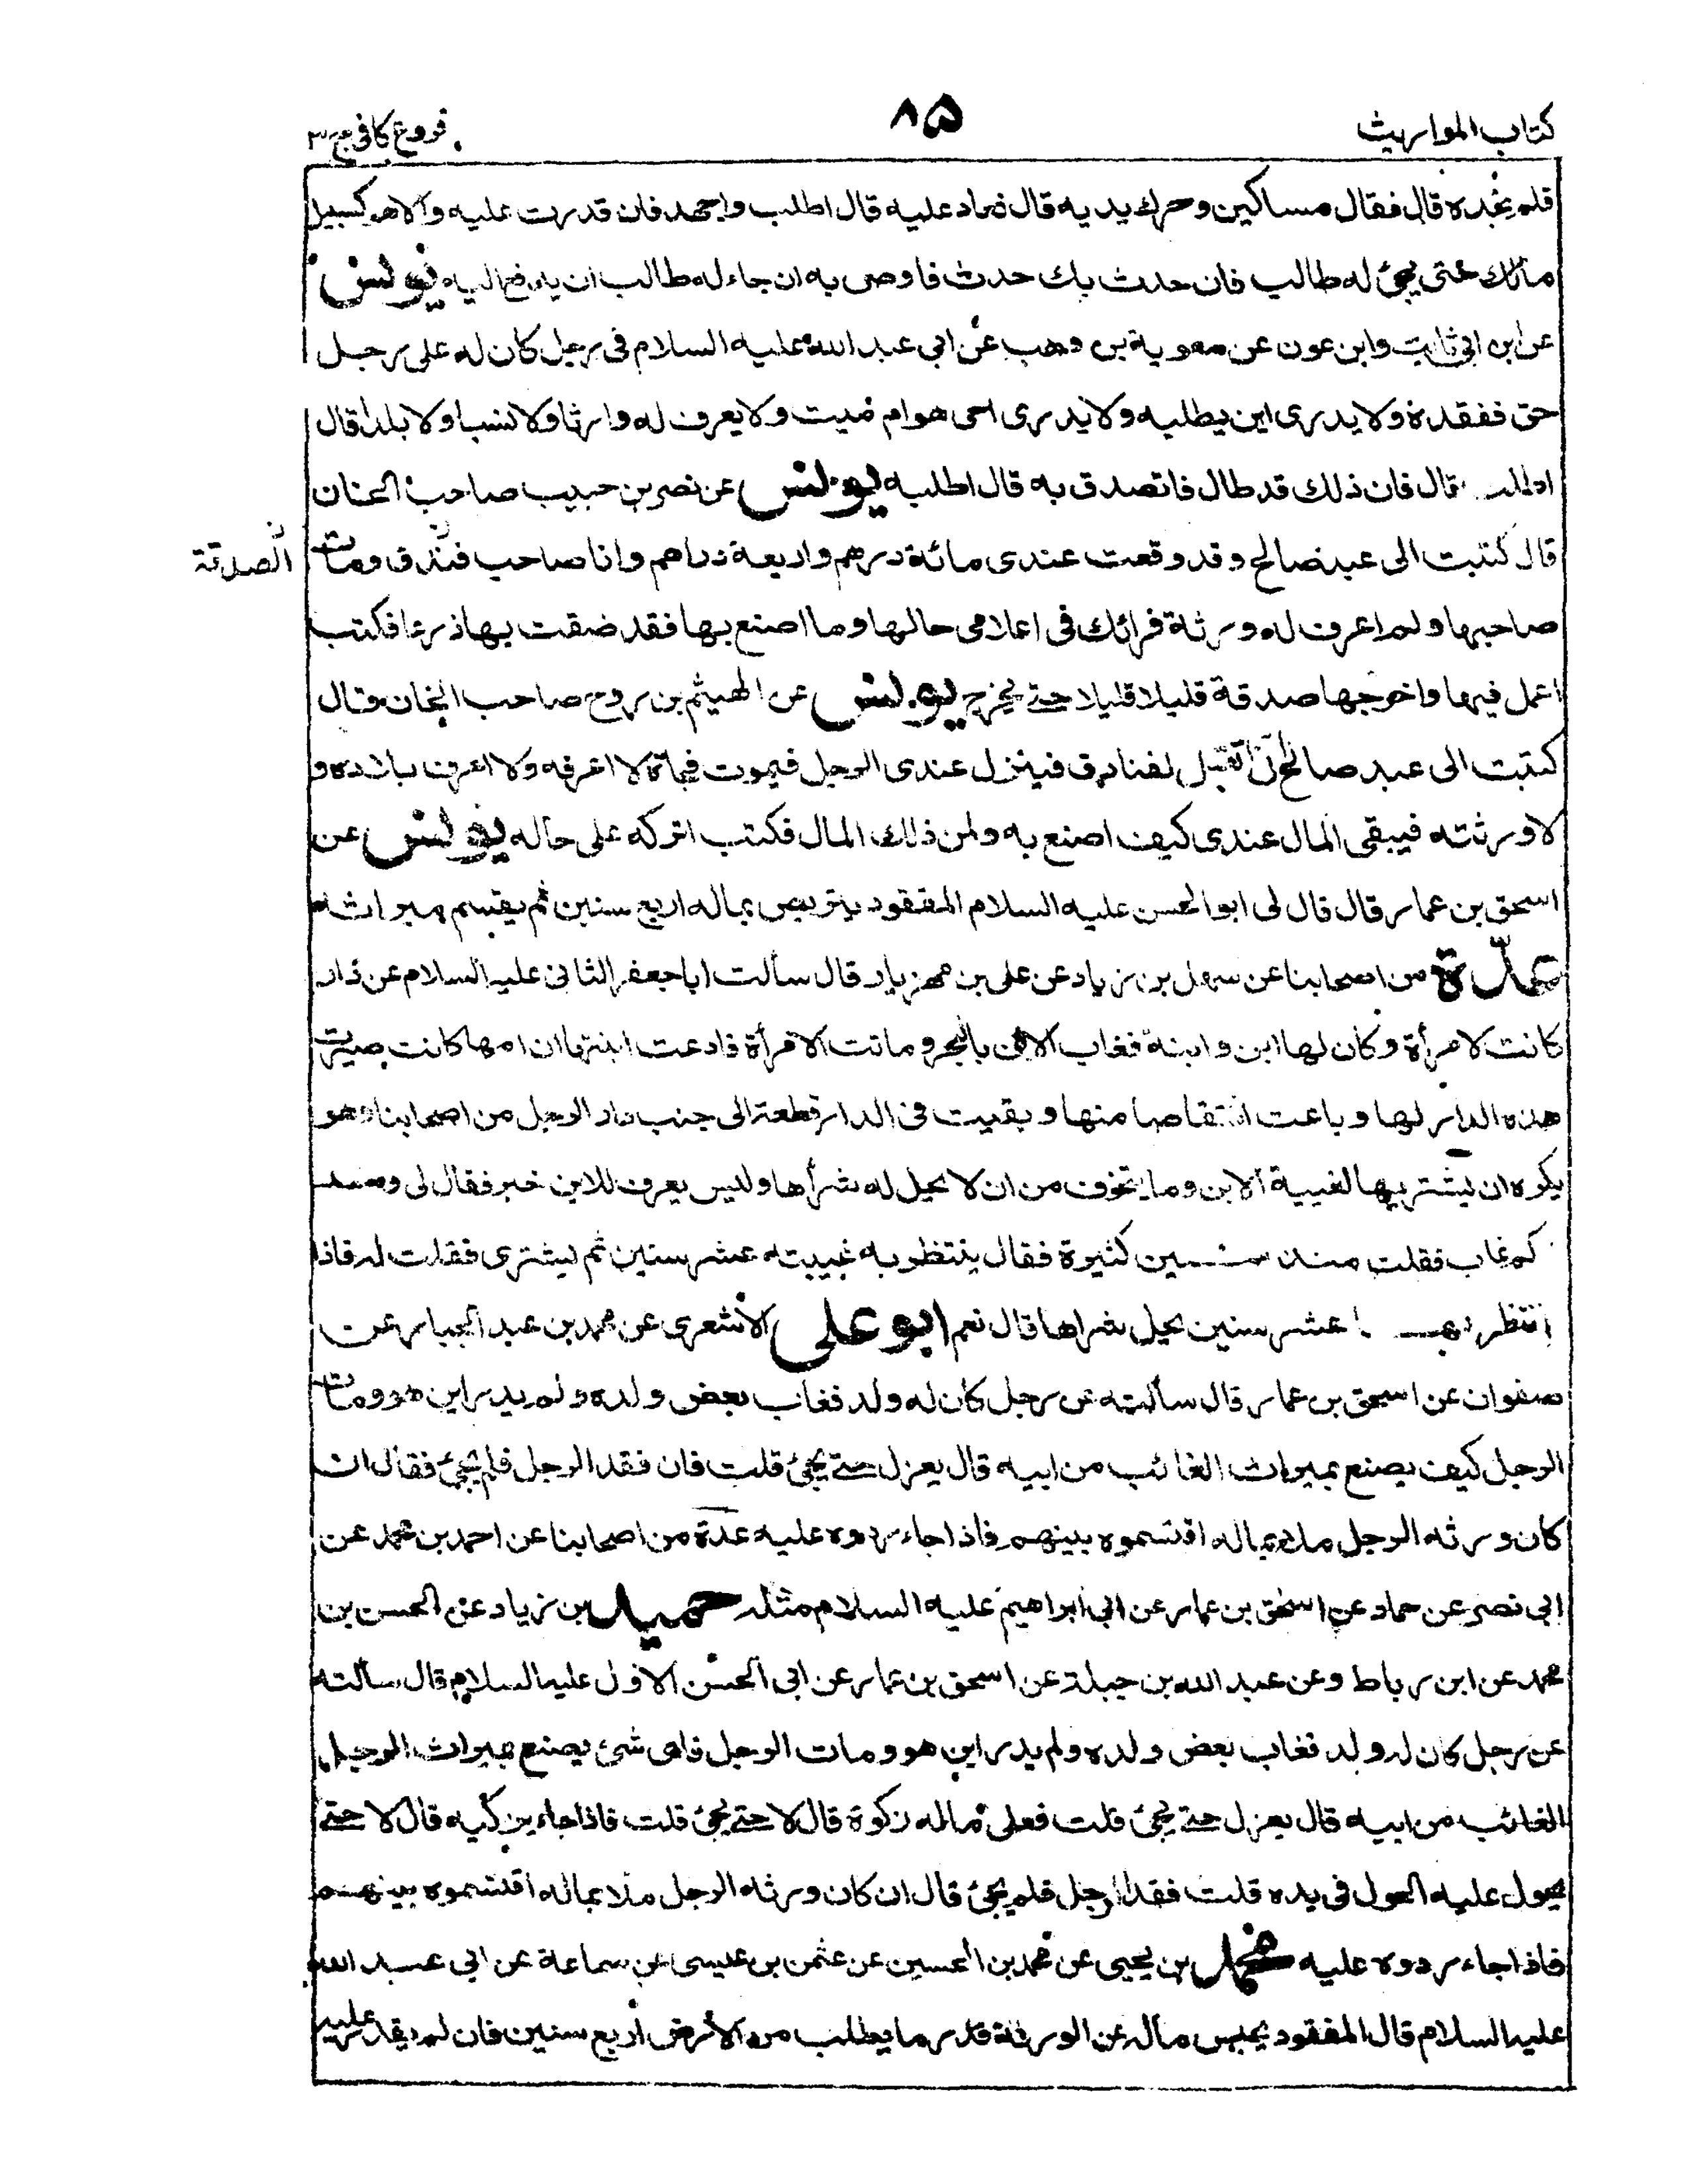 كتاب المواريث
٨٥
فروع كافى ج ٣
فلم نجده قال فقال مساكين وحرك يديه قال فعاد عليه قال اطلب واجهد فان قدرت عليه والا هو كسبيل
مالك حتى يجئ له طالب فان حدث بك حدث فاوصى به ان جاء له طالب ان يدفع اليه يونس
عن ابن ابى ثابت وابن عون عن معوية بن وهب عن ابي عبد الله عليه السلام فى رجل كان له على رجل
حق ففقدة ولا يدرى اين يطلبه ولا يدرى احى هو ام ميت ولا يعرف له وارثا ولا نسبا ولا بلدا قال
اطلب قال فان ذلك قد طال فاتصدق به قال اطلبه يونس عن نصر بن حبيب صاحب الخان
قال كتبت الى عبد صالح وقد وقعت عندى مائة درهم واربعة دراهم وانا صاحب فندق ومات
الصدقة
صاحبها ولم اعرف له ورثة فرائك فى اعلامى حالها وما اصنع بها فقد ضقت بها ذرعا فكتب
اعمل فيها واخرجها صدقة قليلا قليلا حتى يخرج يونس عن الهيثم بن روح صاحب الخان قال
كتبت الى عبد صالح انى اتقبل الفنادق فينزل عندى الرجل فيموت فجأة لا اعرفه ولا اعرف بلاده و
لا ورثته فيبقى المال عندى كيف اصنع به ولمن ذلك المال فكتب اتركه على حاله يونس عن
اسحق بن عمار قال قال لى ابو الحسن عليه السلام المفقود يتربص بماله اربع سنين ثم يقسم ميراثه
عدة من اصحابنا عن سهل بن زياد عن على بن مهزيار قال سألت ابا جعفر الثانى عليه السلام عن دار
كانت لامرأة وكان لها ابن وابنة فغاب الابن بالبحر وماتت الامرأة فادعت ابنتها ان امها كانت صيرت
هذه الدار لها وباعت انتقاصا منها وبقيت فى الدار قطعة الى جنب دار الرجل من اصحابنا وهو
يكره ان يشتريها لغيبة الابن وما يتخوف من ان لا يحل له شرأها وليس يعرف للابن خبر فقال لى ومنذ
كم غاب فقلت منذ سنين كثيرة فقال ينتظر به غيبته عشر سنين ثم يشترى فقلت له فاذا
انتظر بها عشر سنين يحل شراها قال نعم ابو على الاشعرى عن محمد بن عبد الجبار عن
صفوان عن اسحق بن عمار قال سألته عن رجل كان له ولد فغاب بعض ولده ولم يدر اين هو ومات
الرجل كيف يصنع بميراث الغائب من ابيه قال يعزل حتى يجئ قلت فان فقد الرجل فلم يجئ فقال ان
كان ورثه الرجل ملاء بماله اقتسموه بينهم فاذا جاء ردوه عليه عدة من اصحابنا عن احمد بن محمد عن
ابى نصر عن حماد عن اسحق بن عمار عن ابى ابراهيم عليه السلام مثله حميد بن زياد عن الحسن بن
محمد عن ابن رباط وعن عبد الله بن جبلة عن اسحق بن عمار عن ابى الحسن الاول عليه السلام قال سألته
عن رجل كان له ولد فغاب بعض ولده ولم يدر اين هو ومات الرجل فاى شئ يصنع بميراث الرجل
الغائب من ابيه قال يعزل حتى يجئ قلت فعلى ماله زكوة قال لا حتى يجئ قلت فاذا جاء يزكيه قال لا حتى
يحول عليه الحول فى يده قلت فقد الرجل فلم يجئ قال ان كان ورثه الرجل ملا بماله اقتسموه بينهم
فاذا جاء ردوه عليه محمد بن يحيى عن محمد بن الحسين عن عثمن بن عيسى عن سماعة عن ابى عبد الله
عليه السلام قال المفقود يحبس ماله عن الورثة قدر ما يطلب من الارض اربع سنين فان لم يقدر عليه